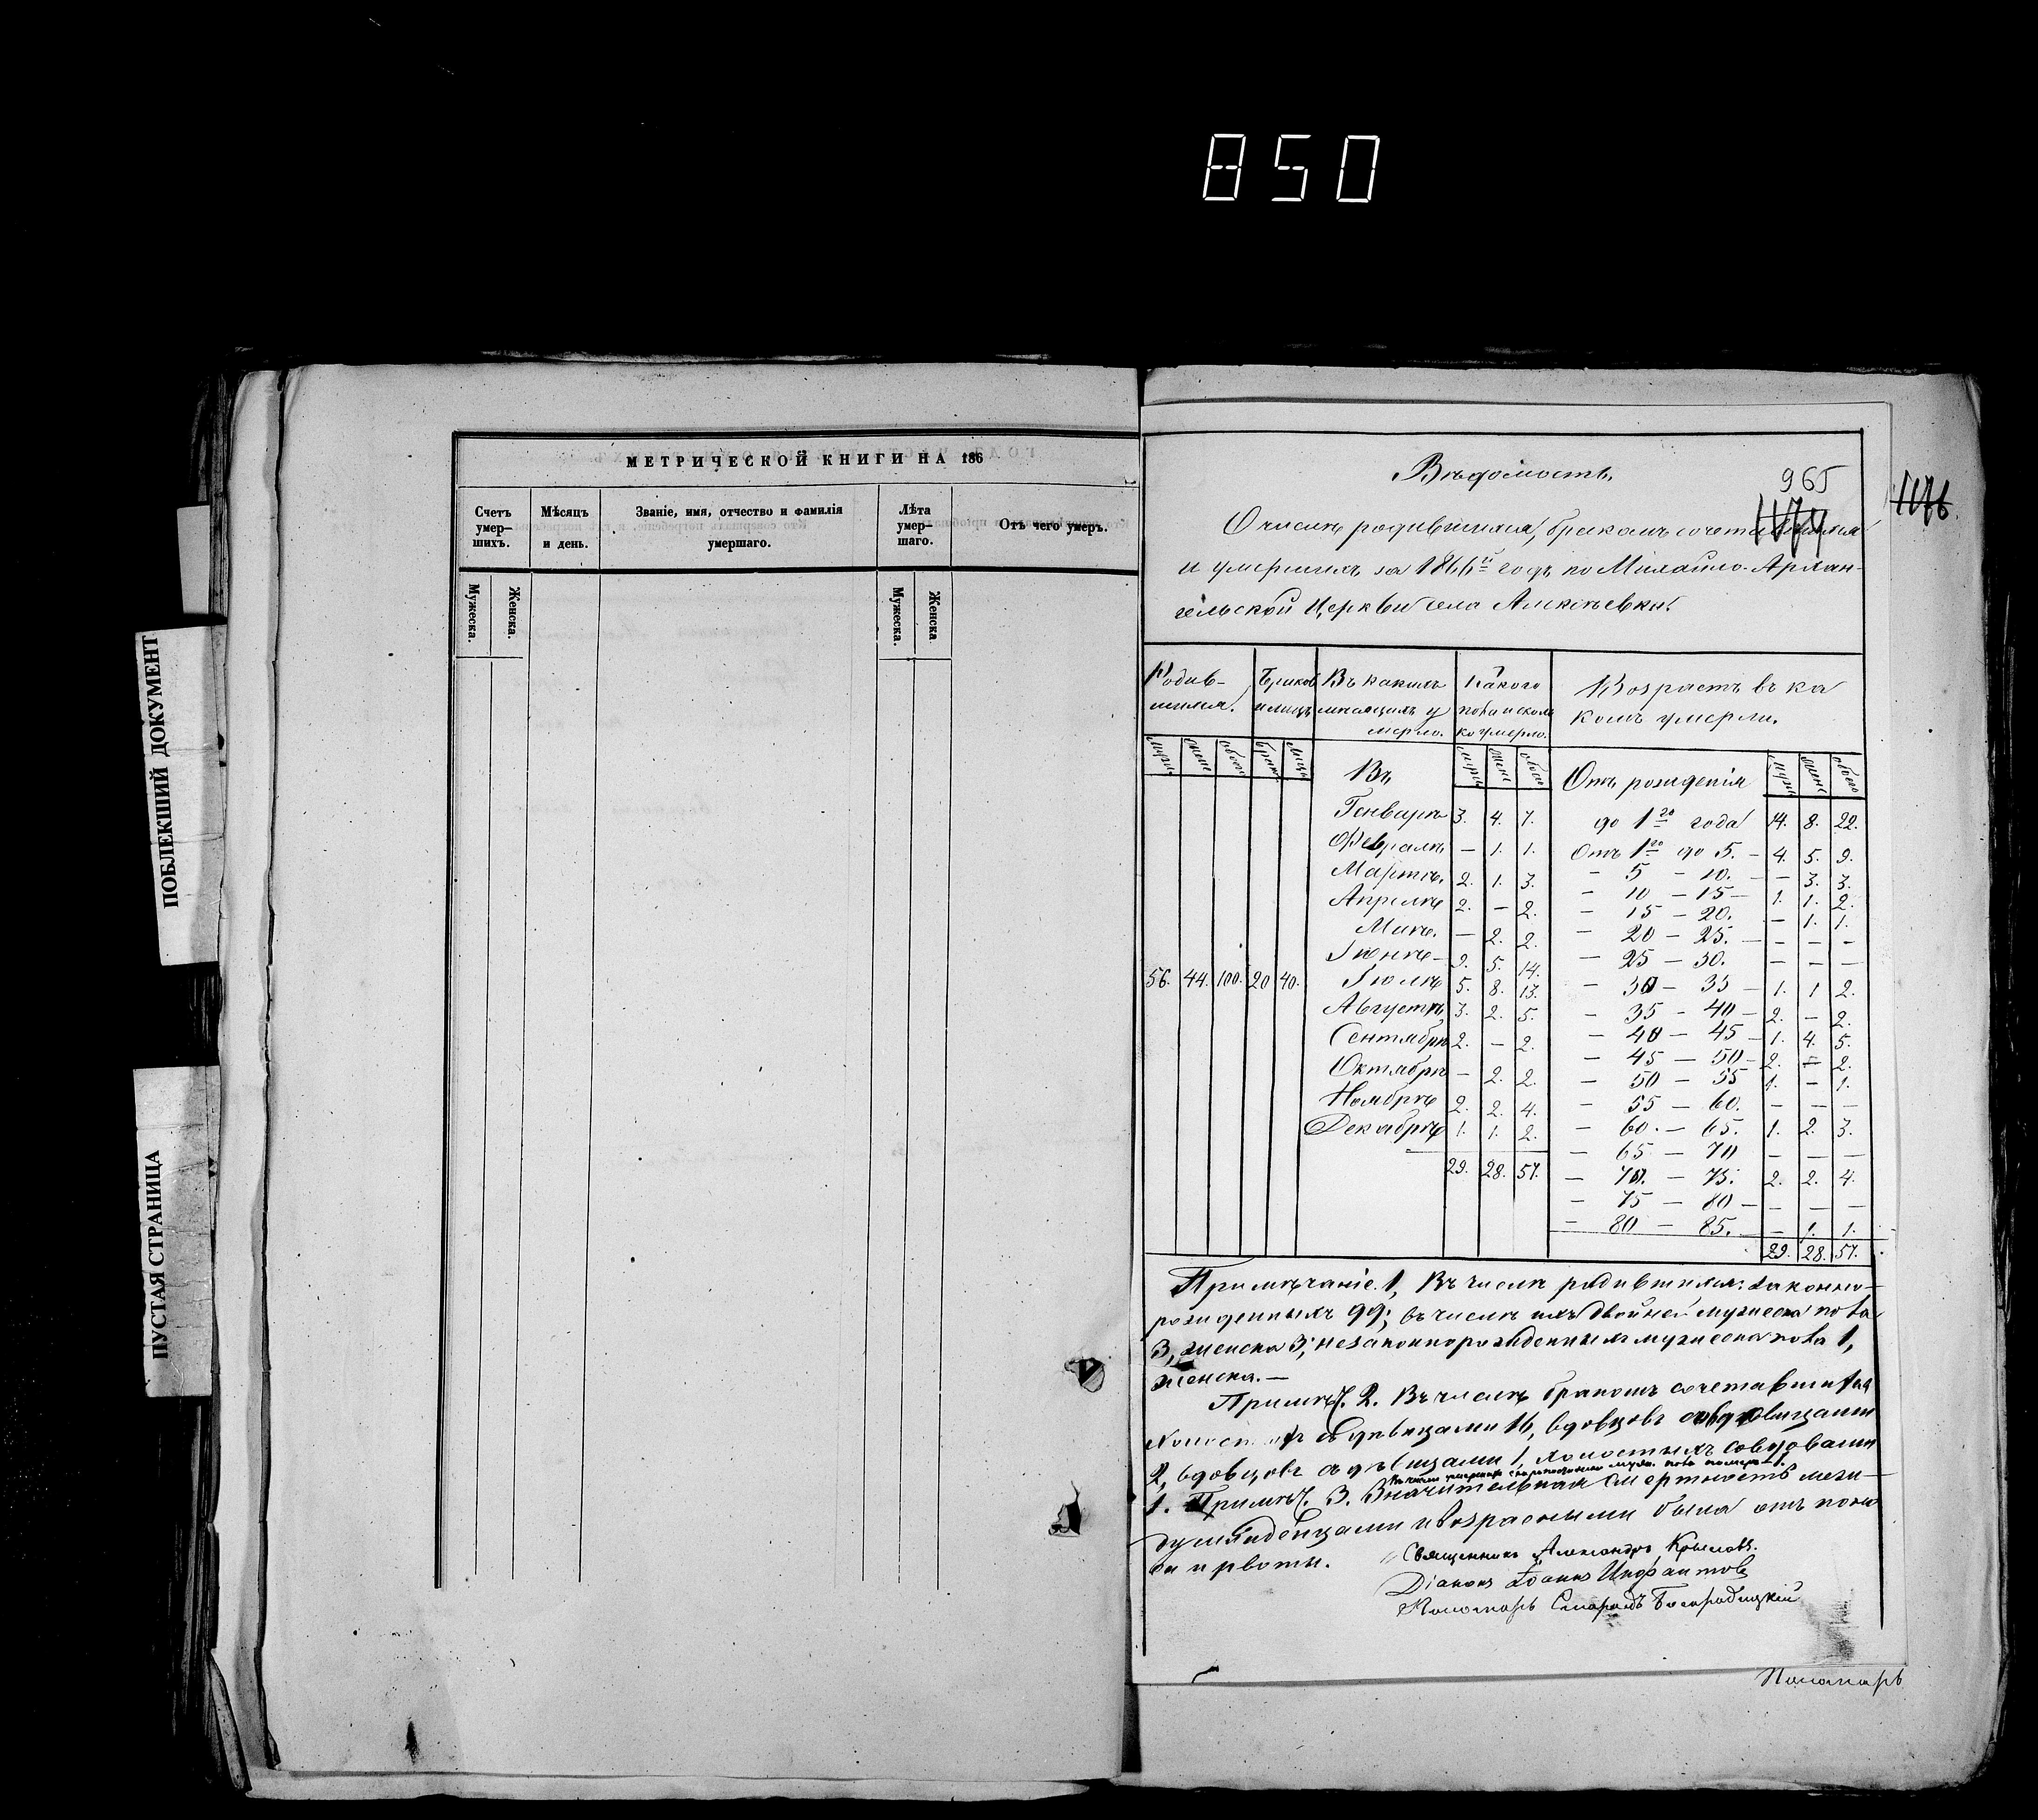 850
ПОБЛЕКШИЙ ДОКУМЕНТ
ПУСТАЯ СТРАНИЦА
МЕТРИЧЕСКОЙ КНИГИ НА 186
Счетъ умер-шихъ.
Мѣсяцъ и день.
Званіе, имя, отчество и фамилія умершаго.
Лѣта умер-шаго.
Отъ чего умеръ.
Мужеска. Женска. Мужеска. Женска
Вѣдомость
965
1174
1176.
О числѣ родившихся, бракомъ сочетавшихся
и умершихъ за 1866й годъ по Михайло-Архан-
гельской Церкви села Алексѣевки.
Родив-шихся. Браковъ и лицъ Въ какихъ мѣсяцахъ умерло. Какого пола и сколько умерло. Возрастъ въ ка
комъ умерли.
муж жен обоего брак. лицъ Въ муж жен обоего Отъ рожденія муж жен обоего
Генварѣ 3. 4. 7. до 1го года 14. 8. 22.
Февралѣ — 1. 1. Отъ 1го до 5. — 4. 5. 9.
Мартѣ. 2. 1. 3. — 5 — 10. — — 3. 3.
Апрѣлѣ 2. — 2. — 10 — 15 — 1. 1. 2.
— 15 — 20. — 1. 1.
Маѣ. — 2. 2. — 20 — 25. — — — —
Іюнѣ — 9. 5. 14. — 25 — 30. — — —
56. 44. 100. 20 40. Іюлѣ 5. 8. 13. — 30 — 35 — 1. 1 2.
Августѣ 3. 2. 5. — 35 — 40 — 2. — 2.
Сентябрѣ 2. — 2. — 40 — 45 — 1. 4. 5.
— 45 — 50 — 2. — 2.
Октябрѣ — 2. 2. — 50 — 55 1. — 1.
Ноябрѣ 2. 2. 4. — 55 — 60. — — —
Декабрѣ 1. 1. 2. — 60. — 65. 1. 2. 3.
— 65 — 70 — — —
29. 28. 57. — 70. — 75. 2. 2. 4.
— 75 — 80 — — — —
— 80 — 85. — 1. 1.
29. 28. 57.
Примѣчаніе 1, Въ числѣ родившихся: законно-
рожденныхъ 99; въ числѣ ихъ двойней мужеска пола
3, женска 3; незаконнорожденныхъ мужеска пола 1,
женска. —
Примѣч. 2. Въ числѣ бракомъ сочетавшихся
съ дѣвицами 16, вдовцовъ съ вдовицами
2, вдовцовъ съ дѣвицами 1, холостыхъ со вдовами
1. Примѣч. 3. Значительная смертность меж-
ду младенцами и возрастными была отъ поно
са и рвоты.
Священникъ Александръ Крыловъ.
Діаконъ Іоаннъ Инфантовъ
Пономарь Богородицкій
Пономарь